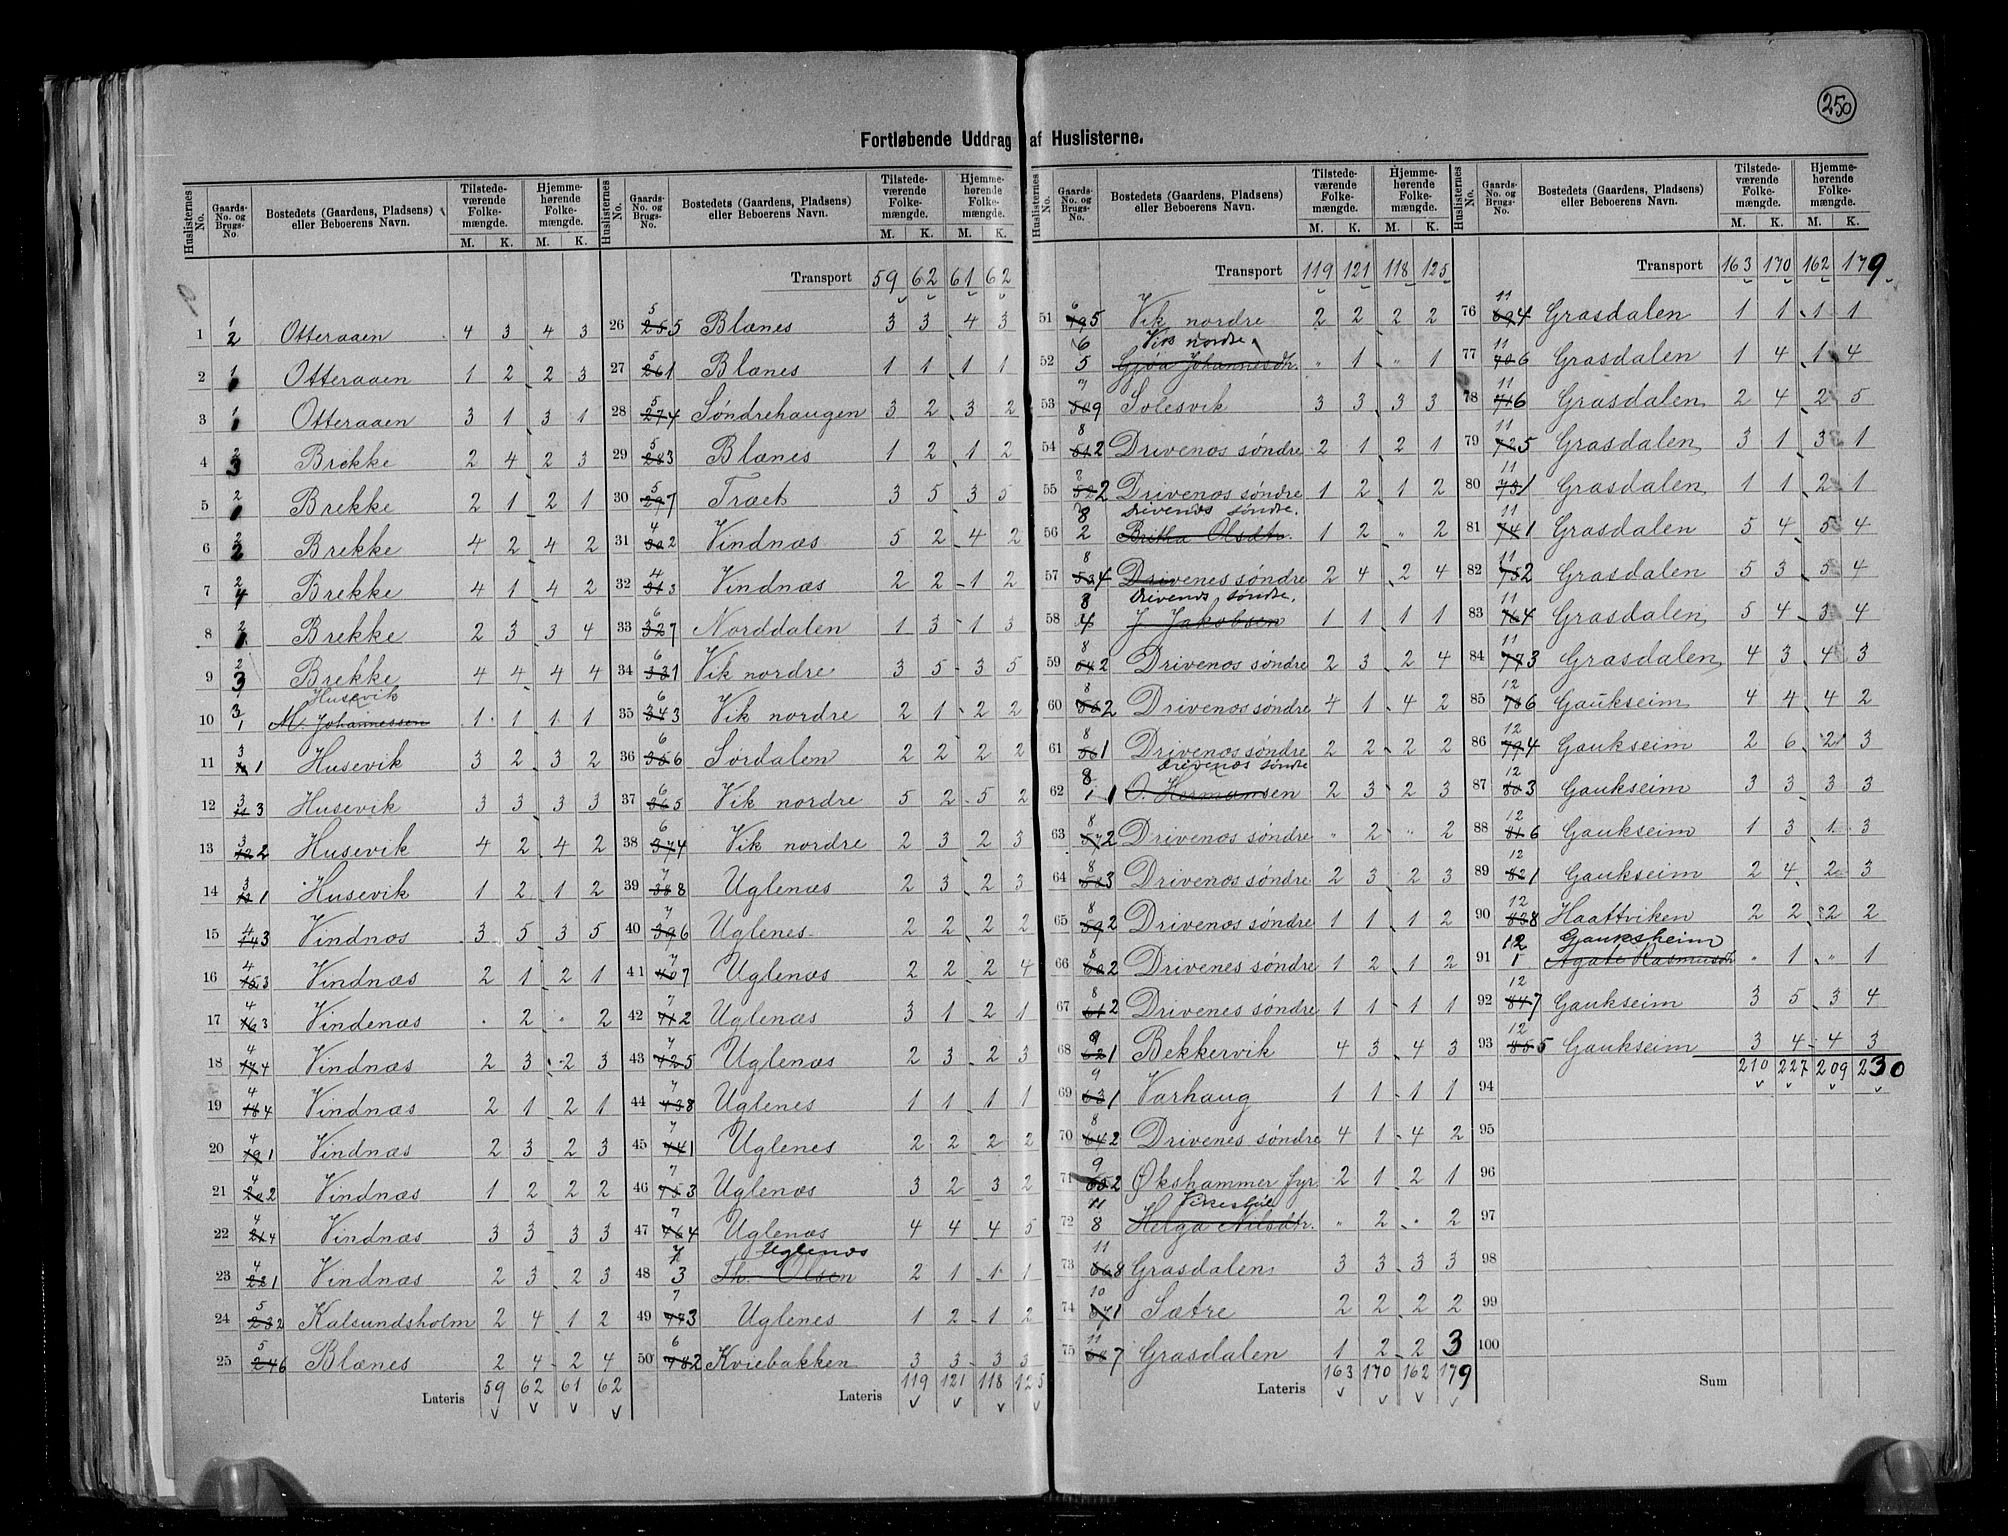 250
Fortløbende Uddrag af Huslisterne.
Huslisternes No. Gaards-No. og Brugs-No. Bostedets (Gaardens, Pladsens) eller Beboerens Navn. Tilstedeværende Folkemængde. M. K. Hjemmehørende Folkemængde. M. K.
1 1 2 Otteraaen 4 3 4 3
2 1 Otteraaen 1 2 2 3
3 1 Otteraaen 3 1 3 1
4 2 3 Brekke 2 4 2 3
5 2 Brekke 2 1 2 1
6 2 Brekke 4 2 4 2
7 2 Brekke 4 1 4 2
8 2 Brekke 2 3 3 4
9 2 3 Brekke 4 4 4 4
Husevik
10 3 1 M. Johannessen 1 1 1 1
11 3 1 Husevik 3 2 3 2
12 3 3 Husevik 3 3 3 3
13 3 2 Husevik 4 2 4 2
14 3 1 Husevik 1 2 1 2
15 4 3 Vindnæs 3 5 3 5
16 4 3 Vindnæs 2 1 2 1
17 4 3 Vindenæs " 2 " 2
18 4 4 Vindnæs 2 3 2 3
19 4 4 Vindnæs 2 1 2 1
20 4 1 Vindnæs 2 3 2 3
21 4 2 Vindnæs 1 2 2 2
22 4 4 Vindnæs 3 3 3 3
23 4 1 Vindnæs 2 3 2 3
24 5 2 Kalsundsholm 2 4 1 2
25 5 246 Blænes 2 4 2 4
Lateris 59 62 61 62
Huslisternes No. Gaards-No. og Brugs-No. Bostedets (Gaardens, Pladsens) eller Beboerens Navn. Tilstedeværende Folkemængde. M. K. Hjemmehørende Folkemængde. M. K.
Transport 59 62 61 62
26 5 255 Blænes 3 3 4 3
27 5 261 Blænes 1 1 1 1
28 5 274 Søndrehaugen 3 2 3 2
29 5 283 Blænes 1 2 1 2
30 5 297 Træet 3 5 3 5
31 4 302 Vindnæs 5 2 4 2
32 4 313 Vindnæs 2 2 1 2
33 6 327 Norddalen 1 3 1 3
34 6 331 Vik nordre 3 5 3 5
35 6 343 Vik nordre 2 1 2 2
36 6 356 Sørdalen 2 2 2 2
37 6 365 Vik nordre 5 2 5 2
38 6 374 Vik nordre 2 3 2 3
39 7 388 Uglenæs 2 3 2 3
40 7 396 Uglenes 2 2 2 2
41 7 407 Uglenæs 2 2 2 4
42 7 412 Uglenæs 3 1 2 1
43 7 425 Uglenæs 2 3 2 3
44 7 438 Uglenes 1 1 1 1
45 7 441 Uglenes 2 2 2 2
46 7 453 Uglenæs 3 2 3 2
47 7 464 Uglenæs 4 4 4 5
Uglenæs
48 7 3 Th. Olsen 2 1 1 1
49 7 473 Uglenes 1 2 1 2
50 6 482 Kviebakken 3 3 3 3
Lateris 119 121 118 125
Huslisternes No. Gaards-No. og Brugs-No. Bostedets (Gaardens, Pladsens) eller Beboerens Navn. Tilstedeværende Folkemængde. M. K. Hjemmehørende Folkemængde. M. K.
Transport 119 121 118 125
51 6 495 Vik nordre 2 2 2 2
Vik nordre
52 6 5 Gjøa Johannesdtr. " 1 " 1
53 7 509 Solesvik 3 3 3 3
54 8 512 Drivenæs søndre 2 1 2 1
55 8 522 Drivenæs søndre 1 2 1 2
Drivenæs søndre.
56 8 2 Britha Olsdtr. 1 2 " 2
57 8 534 Drivenes søndre 2 4 2 4
Drivenæs søndre.
58 8 4 J. Jakobsen 1 1 1 1
59 8 542 Drivenæs søndre 2 3 2 4
60 8 552 Drivenæs søndre 4 1 4 2
61 8 561 Drivenæs søndre 2 2 2 2
Drivenæs søndre
62 8 1 O. Hermansen 2 3 2 3
63 8 572 Drivenæs søndre " 2 " 2
64 8 583 Drivenæs søndre 2 3 2 3
65 8 592 Drivenæs søndre 1 1 1 2
66 8 602 Drivenes søndre 1 2 1 2
67 8 612 Drivenes søndre 1 1 1 1
68 9 621 Bekkervik 4 3 4 3
69 9 631 Varhaug 1 1 1 1
70 8 642 Drivenes søndre 4 1 4 2
71 9 652 Økshammer fyr 2 1 2 1
72 11 8 Helga Nilsdtr. " 2 " 2
73 11 668 Grasdalen 3 3 3 3
74 10 671 Sætre 2 2 2 2
75 11 687 Grasdalen 1 2 2 3
Lateris 163 170 162 179
Huslisternes No. Gaards-No. og Brugs-No. Bostedets (Gaardens, Pladsens) eller Beboerens Navn. Tilstedeværende Folkemængde. M. K. Hjemmehørende Folkemængde. M. K.
Transport 163 170 162 179
76 11 694 Grasdalen 1 1 1 1
77 11 706 Grasdalen 1 4 1 4
78 11 716 Grasdalen 2 4 2 5
79 11 725 Grasdalen 3 1 3 1
80 11 731 Grasdalen 1 1 2 1
81 11 741 Grasdalen 5 4 5 4
82 11 752 Grasdalen 5 3 5 4
83 11 764 Grasdalen 5 4 3 4
84 11 773 Grasdalen 4 3 4 3
85 12 786 Gaukseim 4 4 4 2
86 12 794 Gaukseim 2 6 2 3
87 12 803 Gaukseim 3 3 3 3
88 12 816 Gaukseim 1 3 1 3
89 12 821 Gaukseim 2 4 2 3
90 12 838 Haattviken 2 2 2 2
Gauksheim
91 12 1 Agate Rasmusdtr " 1 " 1
92 12 847 Gaukseim 3 5 3 4
93 12 855 Gaukseim 3 4 4 3
94 210 227 209 230
95
96
97
98
99
100
Sum